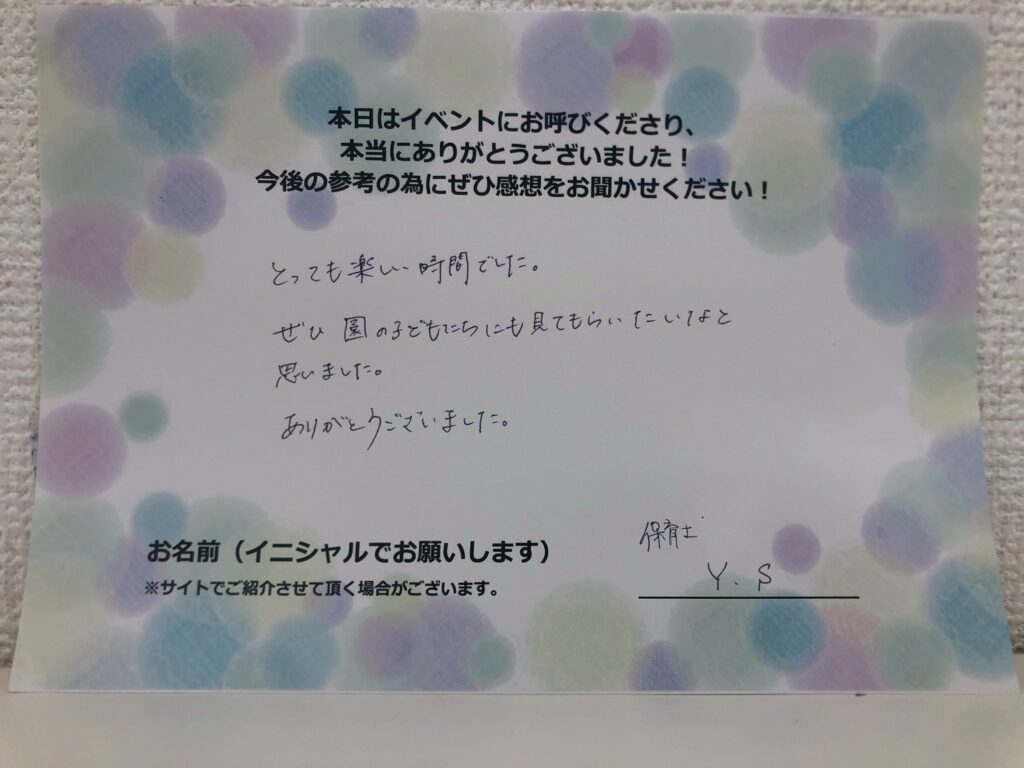 本日はイベントにお呼びくださり、
本当にありがとうございました！
今後の参考の為にぜひ感想をお聞かせください！
とっても楽しい時間でした。
ぜひ 園の子どもたちにも見てもらいたいなと
思いました。
ありがとうございました。
保育士
お名前（イニシャルでお願いします）
Y. S
※サイトでご紹介させて頂く場合がございます。